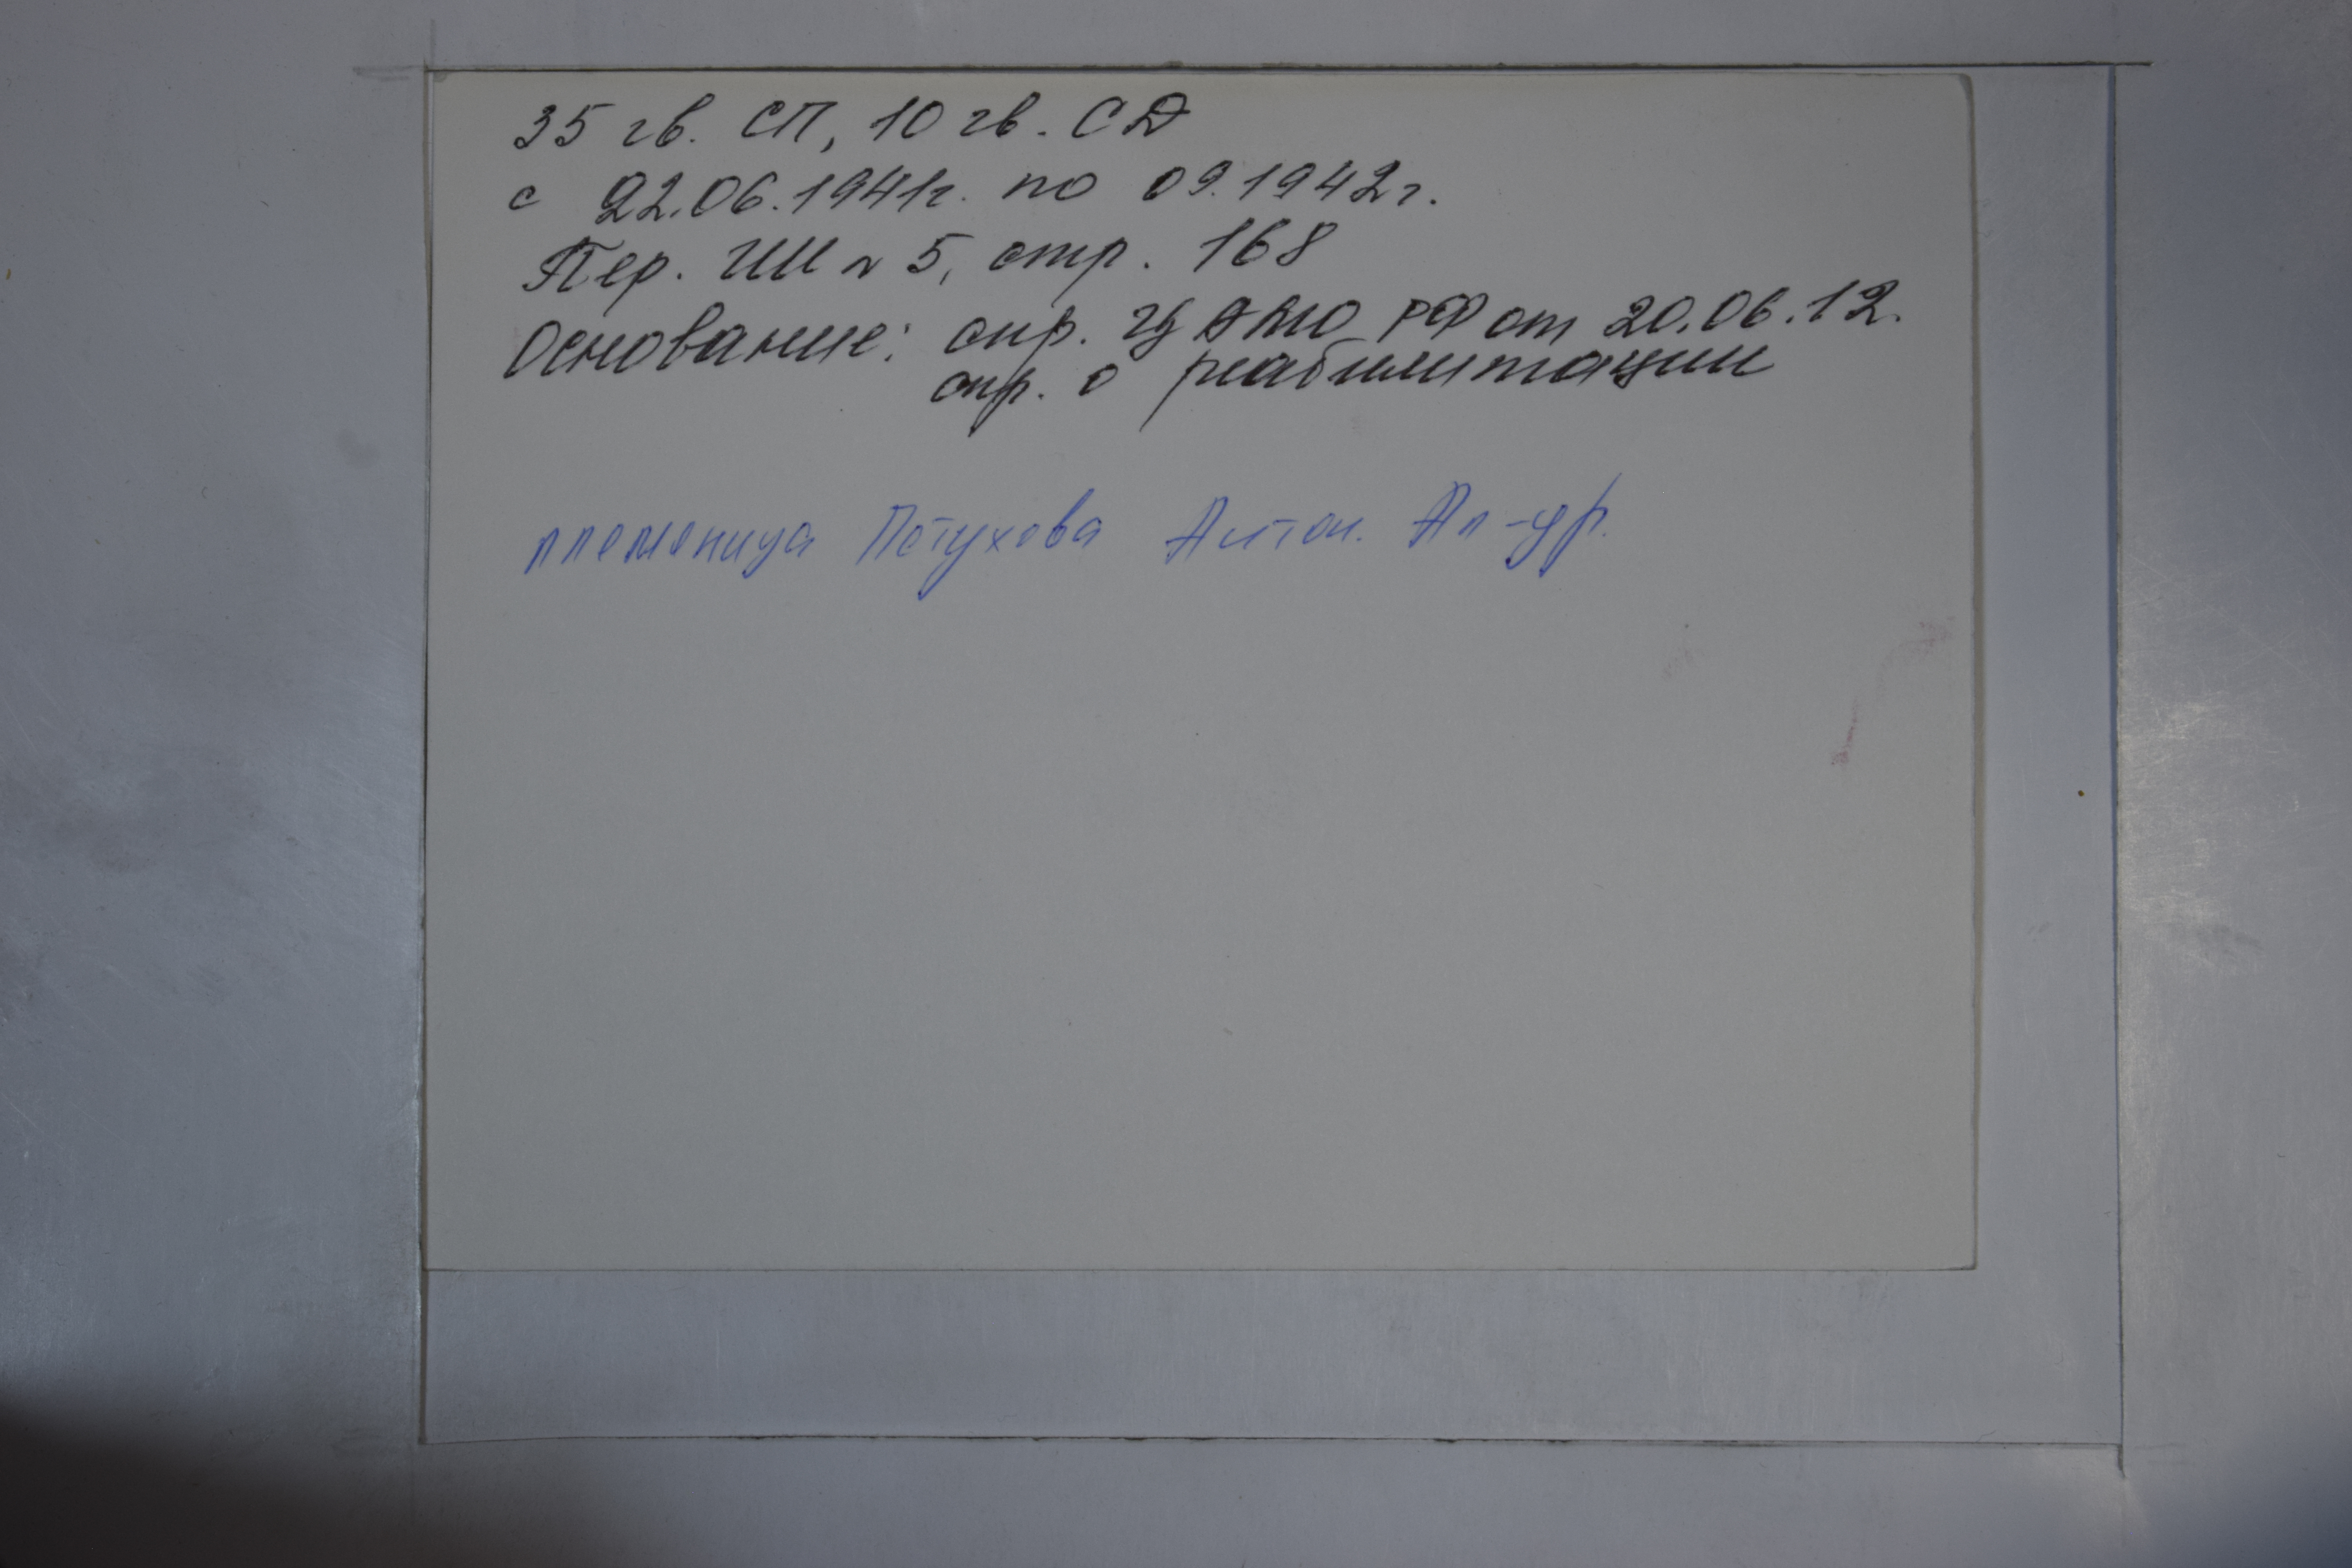 35 гв. СП, 10 гв. СД
с 22.06.1941г. по 09.1942г.
Пер. ГШ № 5, стр. 168
Основание: спр. ЦАМО РФ от 20.06.12.
спр. о реабилитации
племяница Петухова Антон. Ал-др.